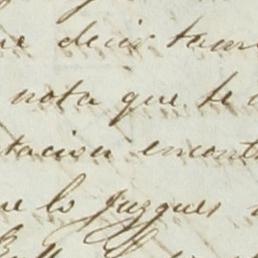 decir tam
nota que te
tacion encont
lo juzgues